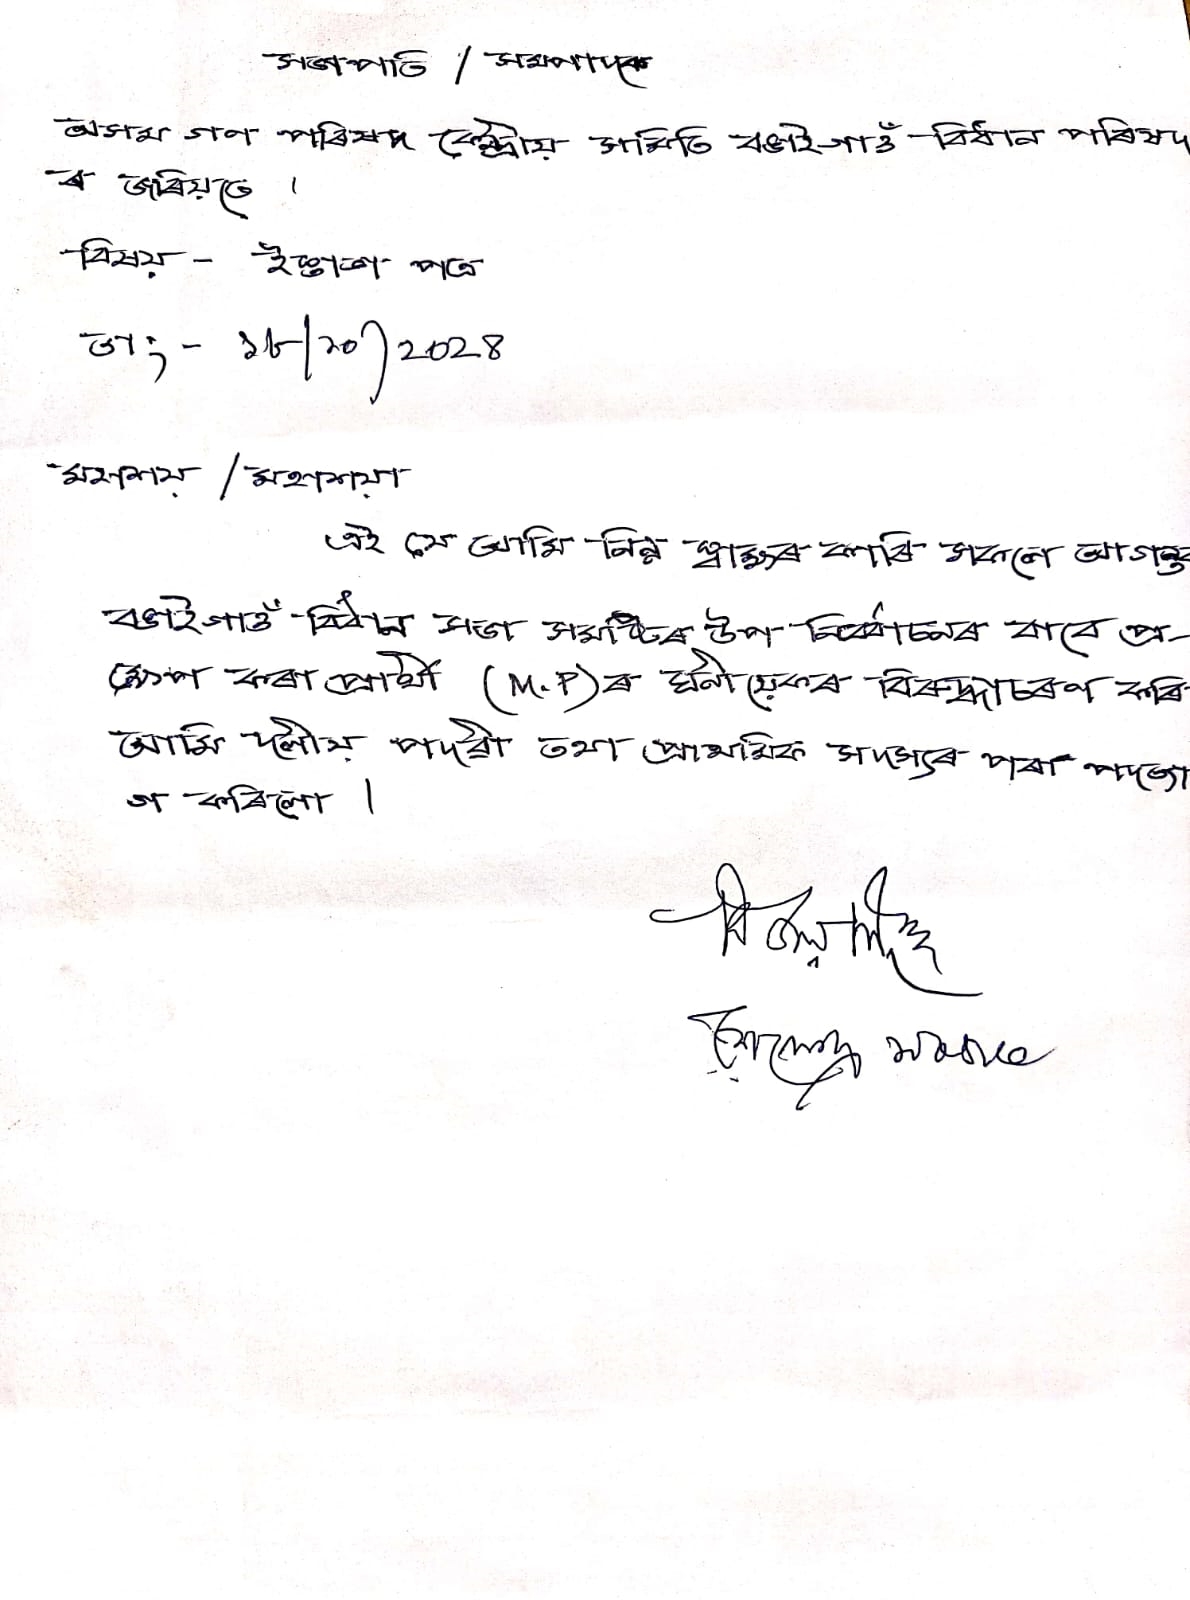 সভাপতি / সম্পাদক
অসম গণ পৰিষদ কেন্দ্ৰীয় সমিতি বঙাইগাওঁ বিধান পৰিষদ
ৰ জৰিয়তে ।
বিষয় - ইস্তাফা পত্ৰ
তাং - ১৮/১০/২০২৪
মহাশয় / মহাশয়া
এই যে আমি নিম্ন স্বাক্ষৰ কাৰি সকলে আগন্তুক
বঙাইগাওঁ বিধান সভা সমষ্টিৰ উপ নিৰ্বাচনৰ বাবে প্ৰ-
কৰা প্ৰাৰ্থী (M.P)ৰ ঘনীয়েকৰ বিৰুদ্ধাচৰণ কৰি
আমি দলীয় পদবী তথা প্ৰাথমিক সদস্যৰ পৰা পদত্যা
গ কৰিলো ।